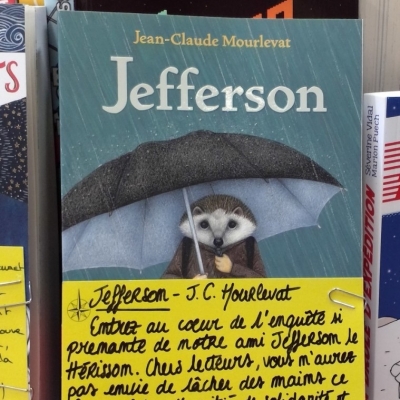 Jean-Claude Mourlevat
Jefferson
Jefferson - J.C. Mourlevat
Entrez au cœur de l'enquête si
prenante de notre ami Jefferson le
Hérisson. Chers lecteurs, vous n'aurez
pas envie de lâcher des mains ce
Séverine Vidal
Marion Puech
D'EXPÉDITION